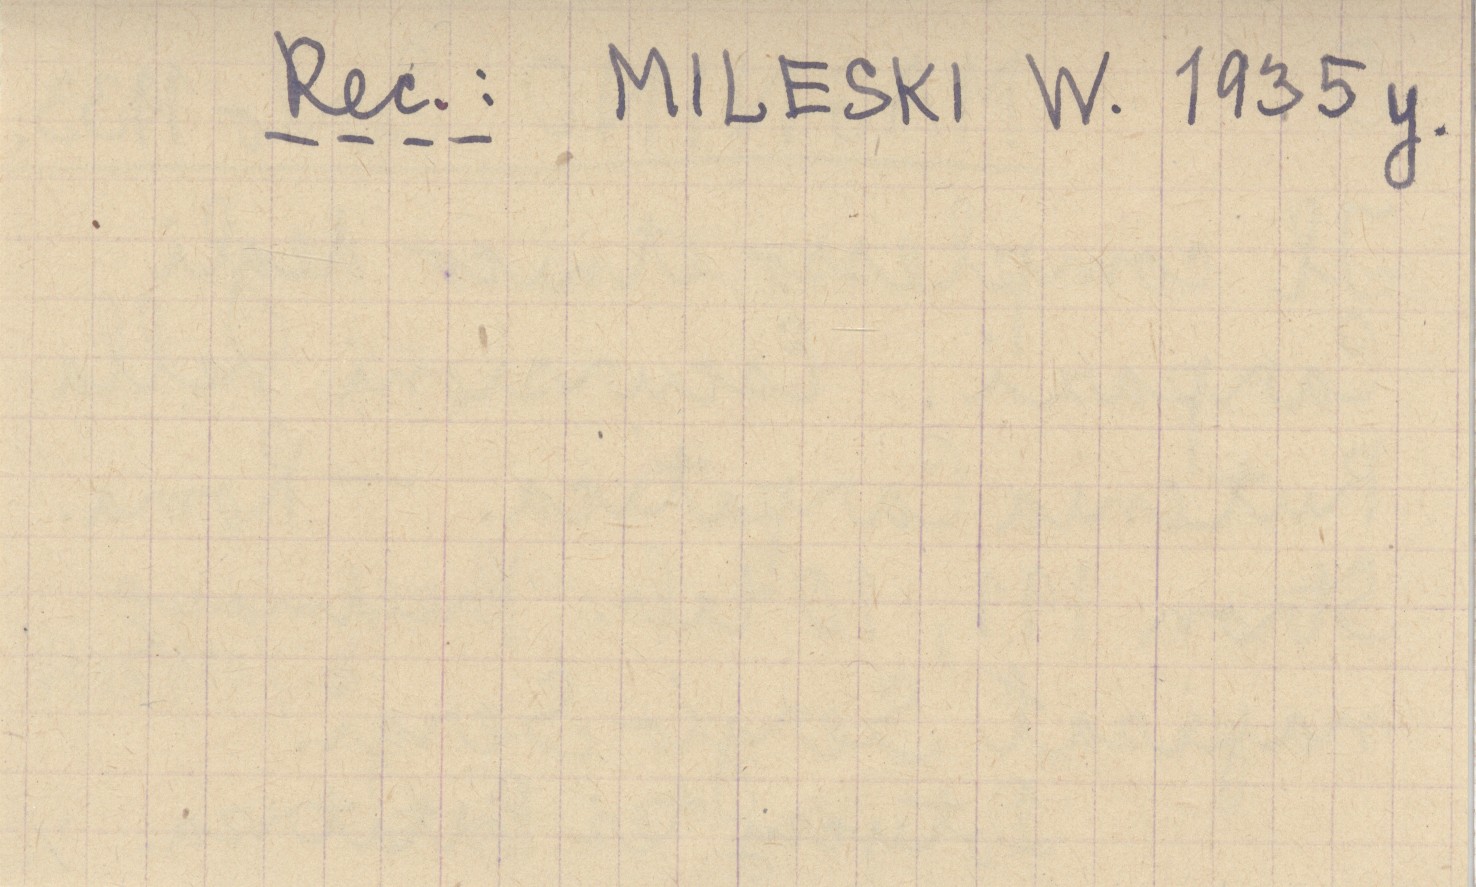 Rec.: MILESKI W. 1935 y.